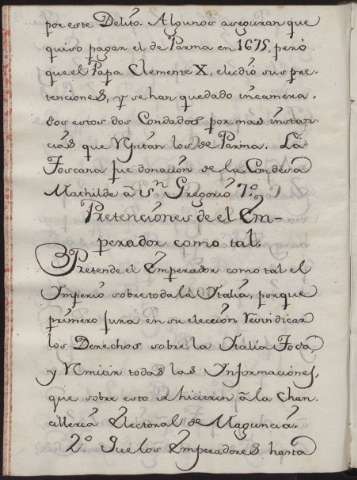 por este Delito. Algunos aseguran que
quiso pagar el de Parma en 1675, però
que el Papa Clemente X, eludiò sus pre-
tenciones, y se han quedado incamera-
dos estos dos Condados por mas instan-
cias que repitan los de Parma. La
Toscana fue donaciòn de la Condesa
Mathilde à Sn. Gregorio 7º.
Pretenciones de el Em-
perador como tal.
Pretende el Emperador como tal el
Imperio sobre toda la Italia, porque
primero jura en su elecciòn reivindicar
los Derechos sobre la Italia Toda
y remitir todas las Informaciones,
que sobre esto se hicieren à la Chan-
cilleria Electoral de Maguncia
2º Que los Emperadores hasta